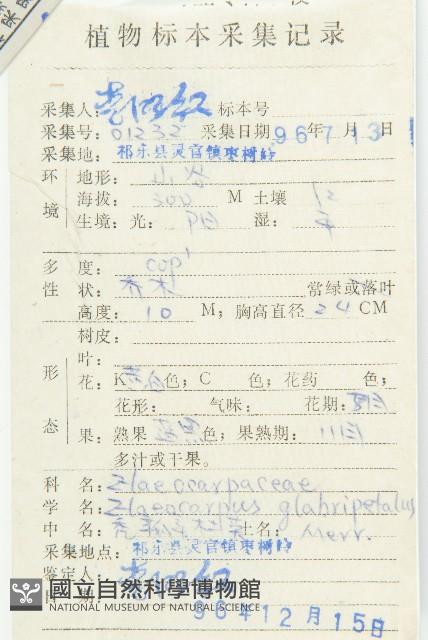 植物标本采集记录
采集人: 标本号
采集号: 01232 采集日期 96年7月13日
采集地: 祁东县灵官镇枣树岭
环 地形: 山谷
海拔: 300 M 土壤 红
境 生境: 光: 阳 湿: 中
多 度: cop¹
性 状: 乔木 常绿或落叶
高度: 10 M; 胸高直径 24 CM
树皮:
叶:
形 花: K 色; C 色; 花药 色;
花形: 气味: 花期:
态 果: 熟果 蓝黑 色; 果熟期: 11月
多汁或干果。
科 名: Elaeocarpaceae
学 名: Elaeocarpus glabripetalus
中 名: 秃瓣杜英 土名: Merr.
采集地点: 祁东县灵官镇枣树岭
鉴定人:
日 期: 96年12月15日
國立自然科學博物館
NATIONAL MUSEUM OF NATURAL SCIENCE